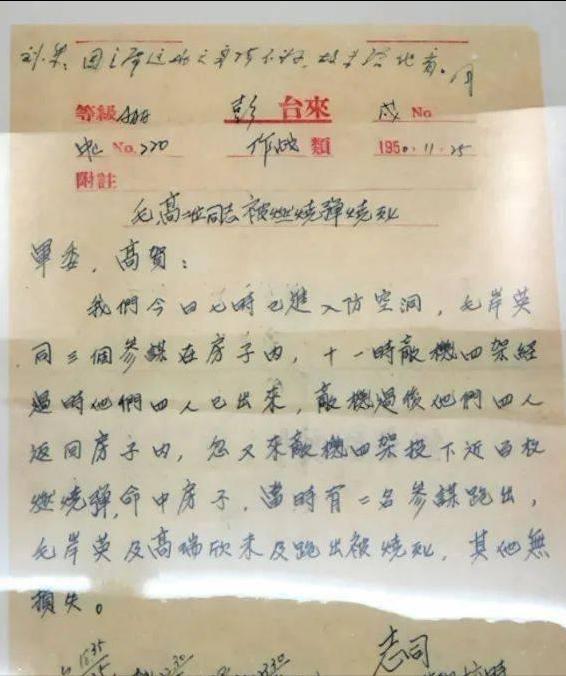 刘、朱：因主席这两天身体不好，故未给他看。周
等級 AAAA 彭 台來 戌 No.
No. 220 作战 類 1950.11.25
附註
毛高二位同志被燃燒彈燒死
軍委，高賀：
我們今日七時已進入防空洞，毛岸英
同三個參謀在房子內，十一時敵機四架經
過時他們四人已出來，敵機過後他們四人
返回房子內，忽又來敵機四架投下近百枚
燃燒彈，命中房子，當時有二名參謀跑出，
毛岸英及高瑞欣未及跑出被燒死，其他無
損失。
志司